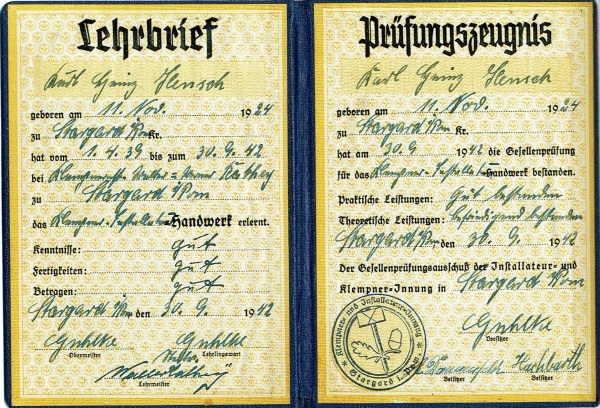 Lehrbrief
Karl Heinz Hensch
geboren am 11. Nov. 1924
zu Stargard i/Pom Kr.
hat vom 1.4.39 bis zum 30.9.42
bei Klempnermstr. Walter
zu Stargard i/Pom
das Klempner-Installateur-Handwerk erlernt.
Kenntnisse: gut
Fertigkeiten: gut
Betragen: gut
Stargard i/Pom den 30.9. 1942
Guhlke Guhlke
Obermeister Lehrlingswart
Walter
Lehrmeister
Prüfungszeugnis
Karl Heinz Hensch
geboren am 11. Nov. 1924
zu Stargard i/Pom Kr.
hat am 30.9 1942 die Gesellenprüfung
für das Klempner-Installateur-Handwerk bestanden.
Praktische Leistungen: Gut bestanden
Theoretische Leistungen: befriedigend bestanden
Stargard i/Pom den 30.9. 1942
Der Gesellenprüfungsausschuß der Installateur- und
Klempner-Innung in Stargard i/Pom
Guhlke
Vorsitzer
Hachbarth
Beisitzer Beisitzer
Klempner und Installateur-Innung
Stargard i. Pom.